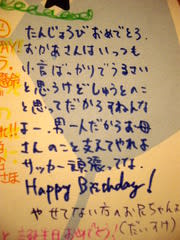 たんじょうびおめでとう。
おかあさんはいっつも
小言ばっかりでうるさい
と思うけどしょうとのこ
と思ってだからすねんな
よー。男一人だからお母
さんのこと支えてやれよ
サッカー頑張ってな。
Happy Birthday!
やせてない方のお兄ちゃんよ
誕生日おめでとう!(だいすけ)